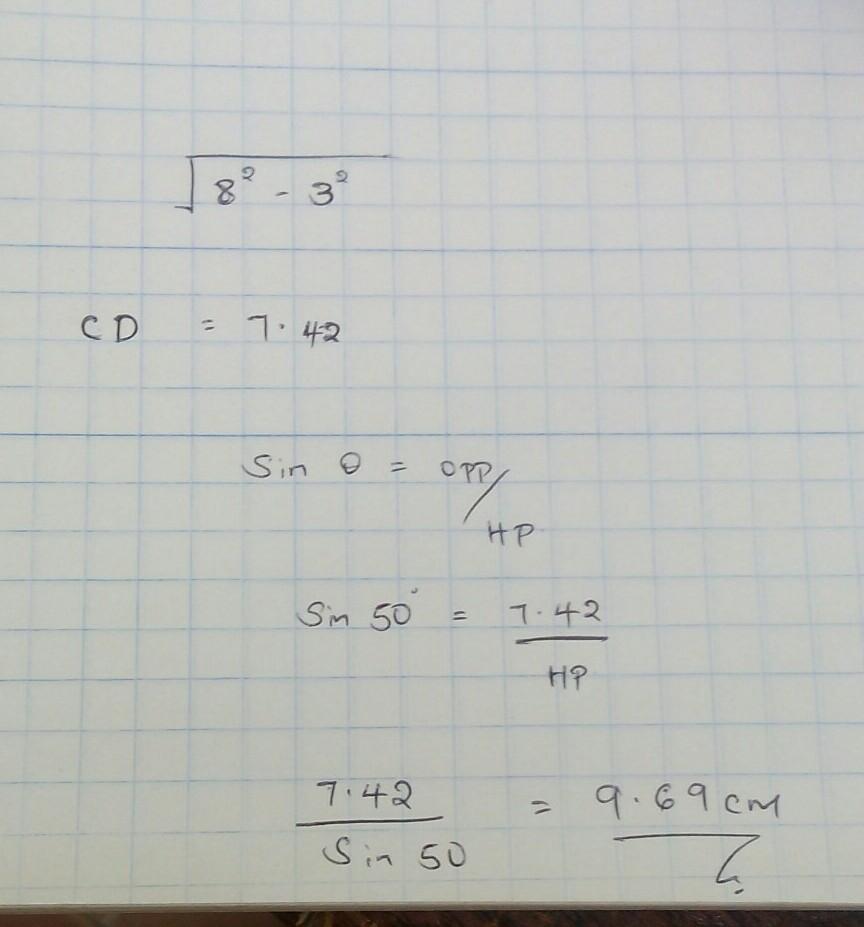 √8² - 3²
CD = 7.42
Sin θ = OPP/HP
Sin 50° = 7.42/HP
7.42/Sin 50 = 9.69 cm